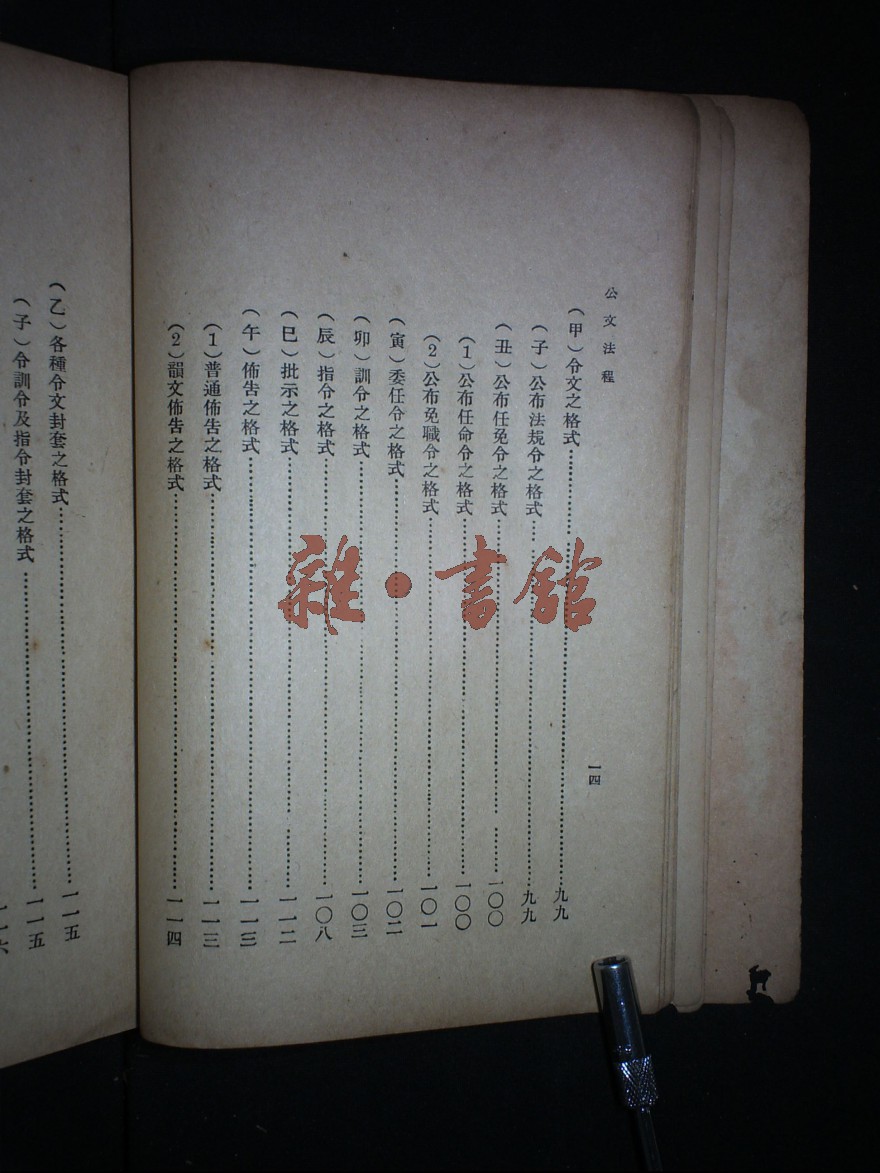 公文法程
一四
（甲）令文之格式……九九
（子）公布法規令之格式……九九
（丑）公布任免令之格式……一〇〇
（1）公布任命令之格式……一〇〇
（2）公布免職令之格式……一〇一
（寅）委任令之格式……一〇二
（卯）訓令之格式……一〇三
（辰）指令之格式……一〇八
（巳）批示之格式……一一二
（午）佈告之格式……一一三
（1）普通佈告之格式……一一三
（2）韻文佈告之格式……一一四
（乙）各種令文封套之格式……一一五
（子）令訓令及指令封套之格式……一一五
一一六
雜·書館